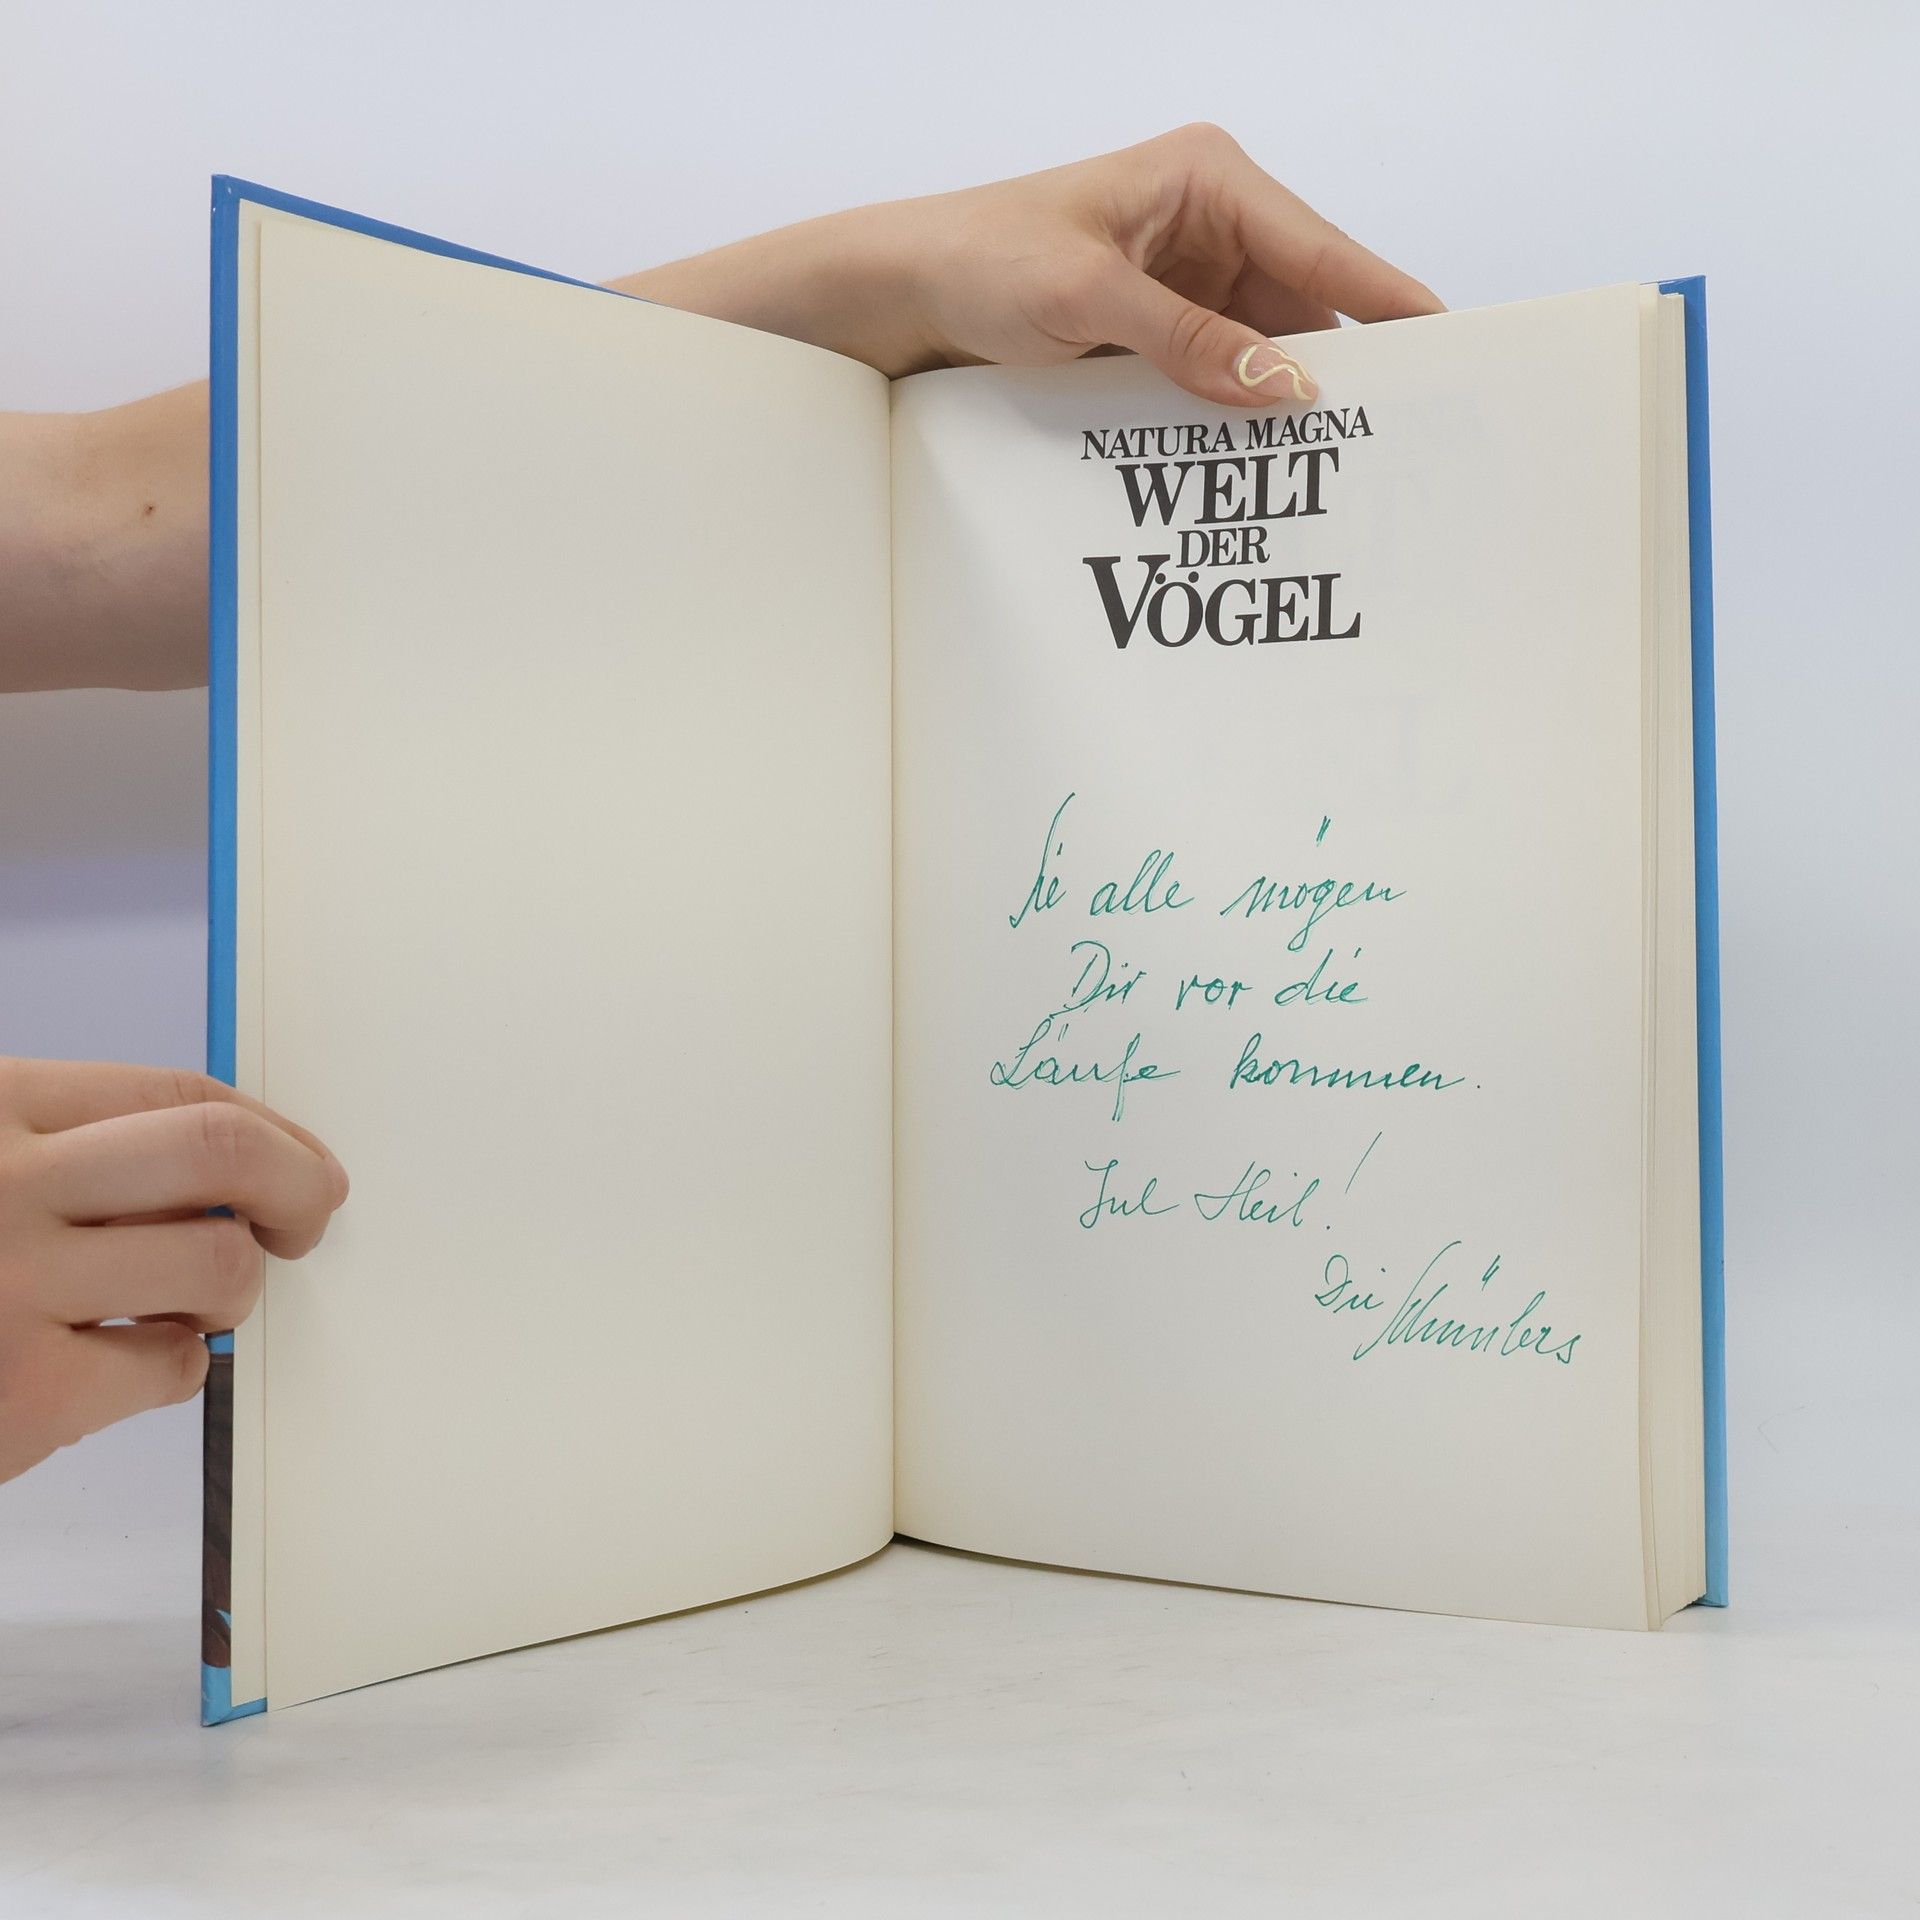 NATURA MAGNA
WELT
DER
VÖGEL
Sie alle mögen
Dir vor die
Läufe kommen.
Jul Heil!
Die